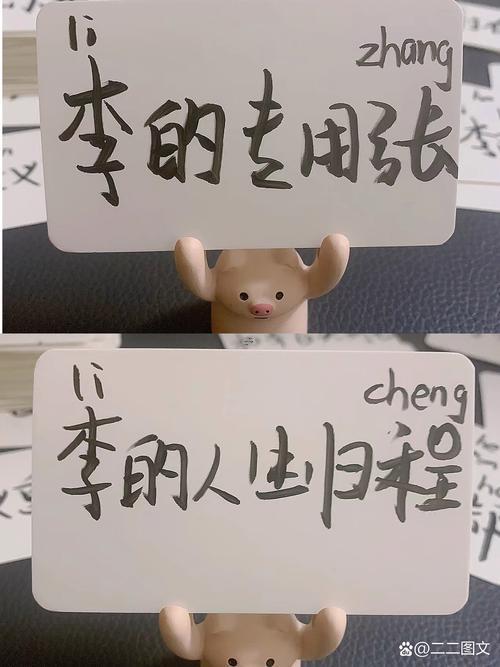 li zhang
李的专用张
li cheng
李的人生归程
@二二图文